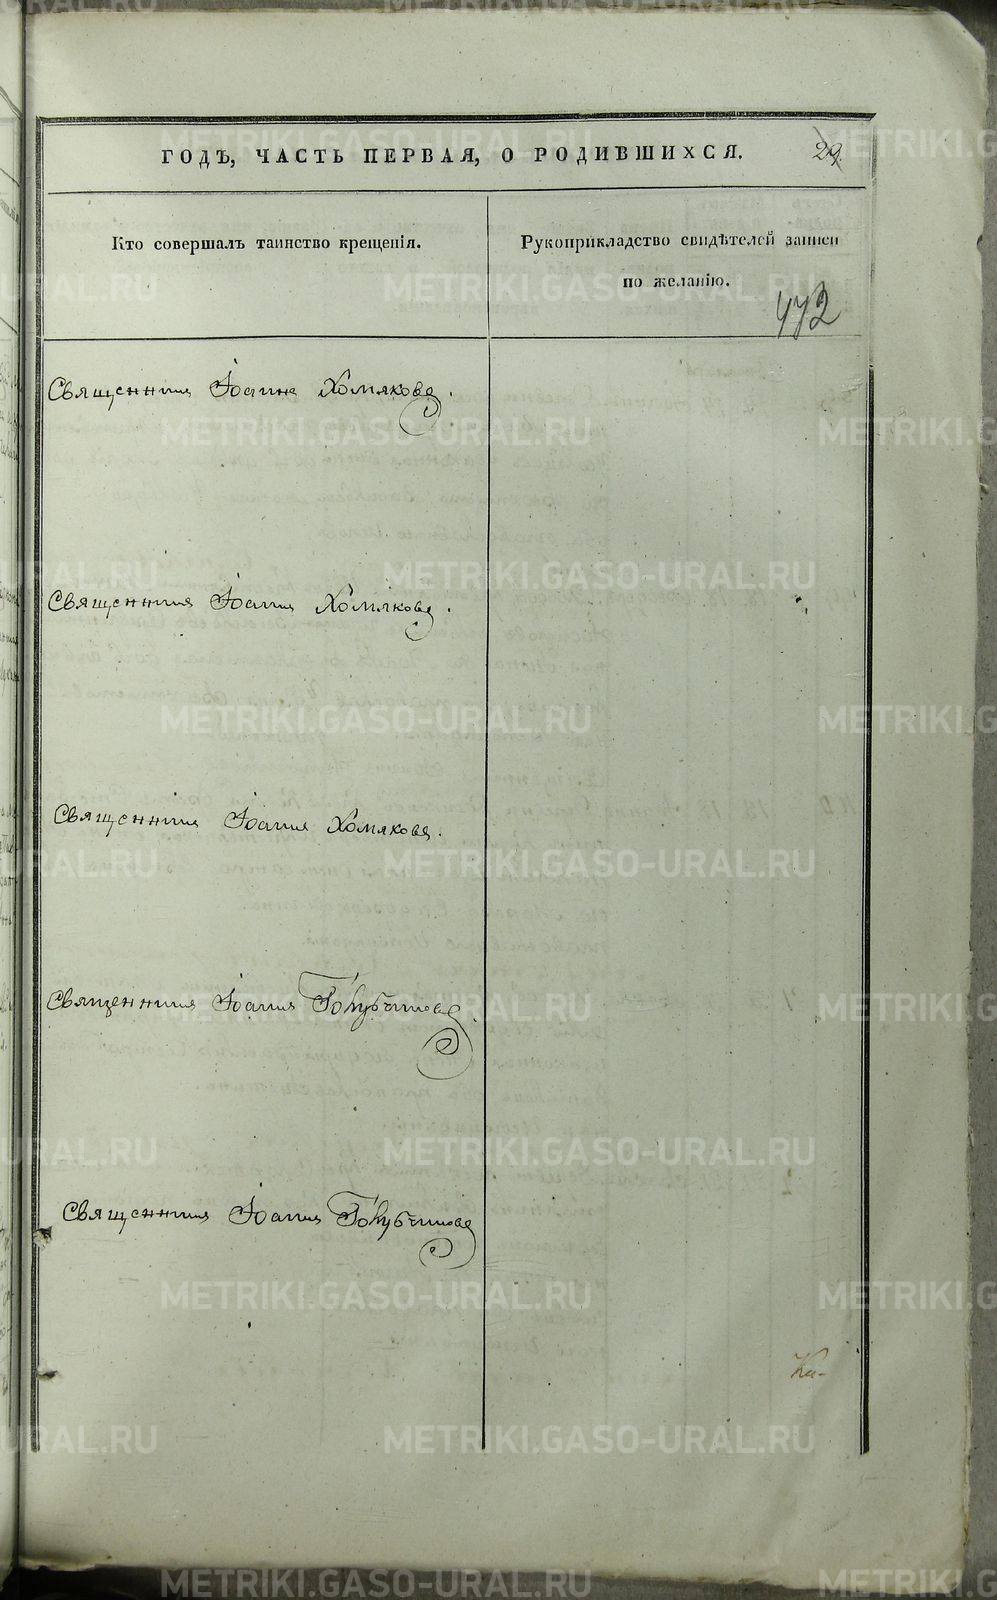 ГОДЪ, ЧАСТЬ ПЕРВАЯ, О РОДИВШИХСЯ.
29.
Кто совершалъ таинство крещенія.
Рукоприкладство свидѣтелей записи
по желанію.
442
Священникъ Іоаннъ Хомяковъ.
Священникъ Іоаннъ Хомяковъ.
Священникъ Іоаннъ Хомяковъ.
Священникъ Іоаннъ Голубчиковъ.
Священникъ Іоаннъ Голубчиковъ
METRIKI.GASO-URAL.RU